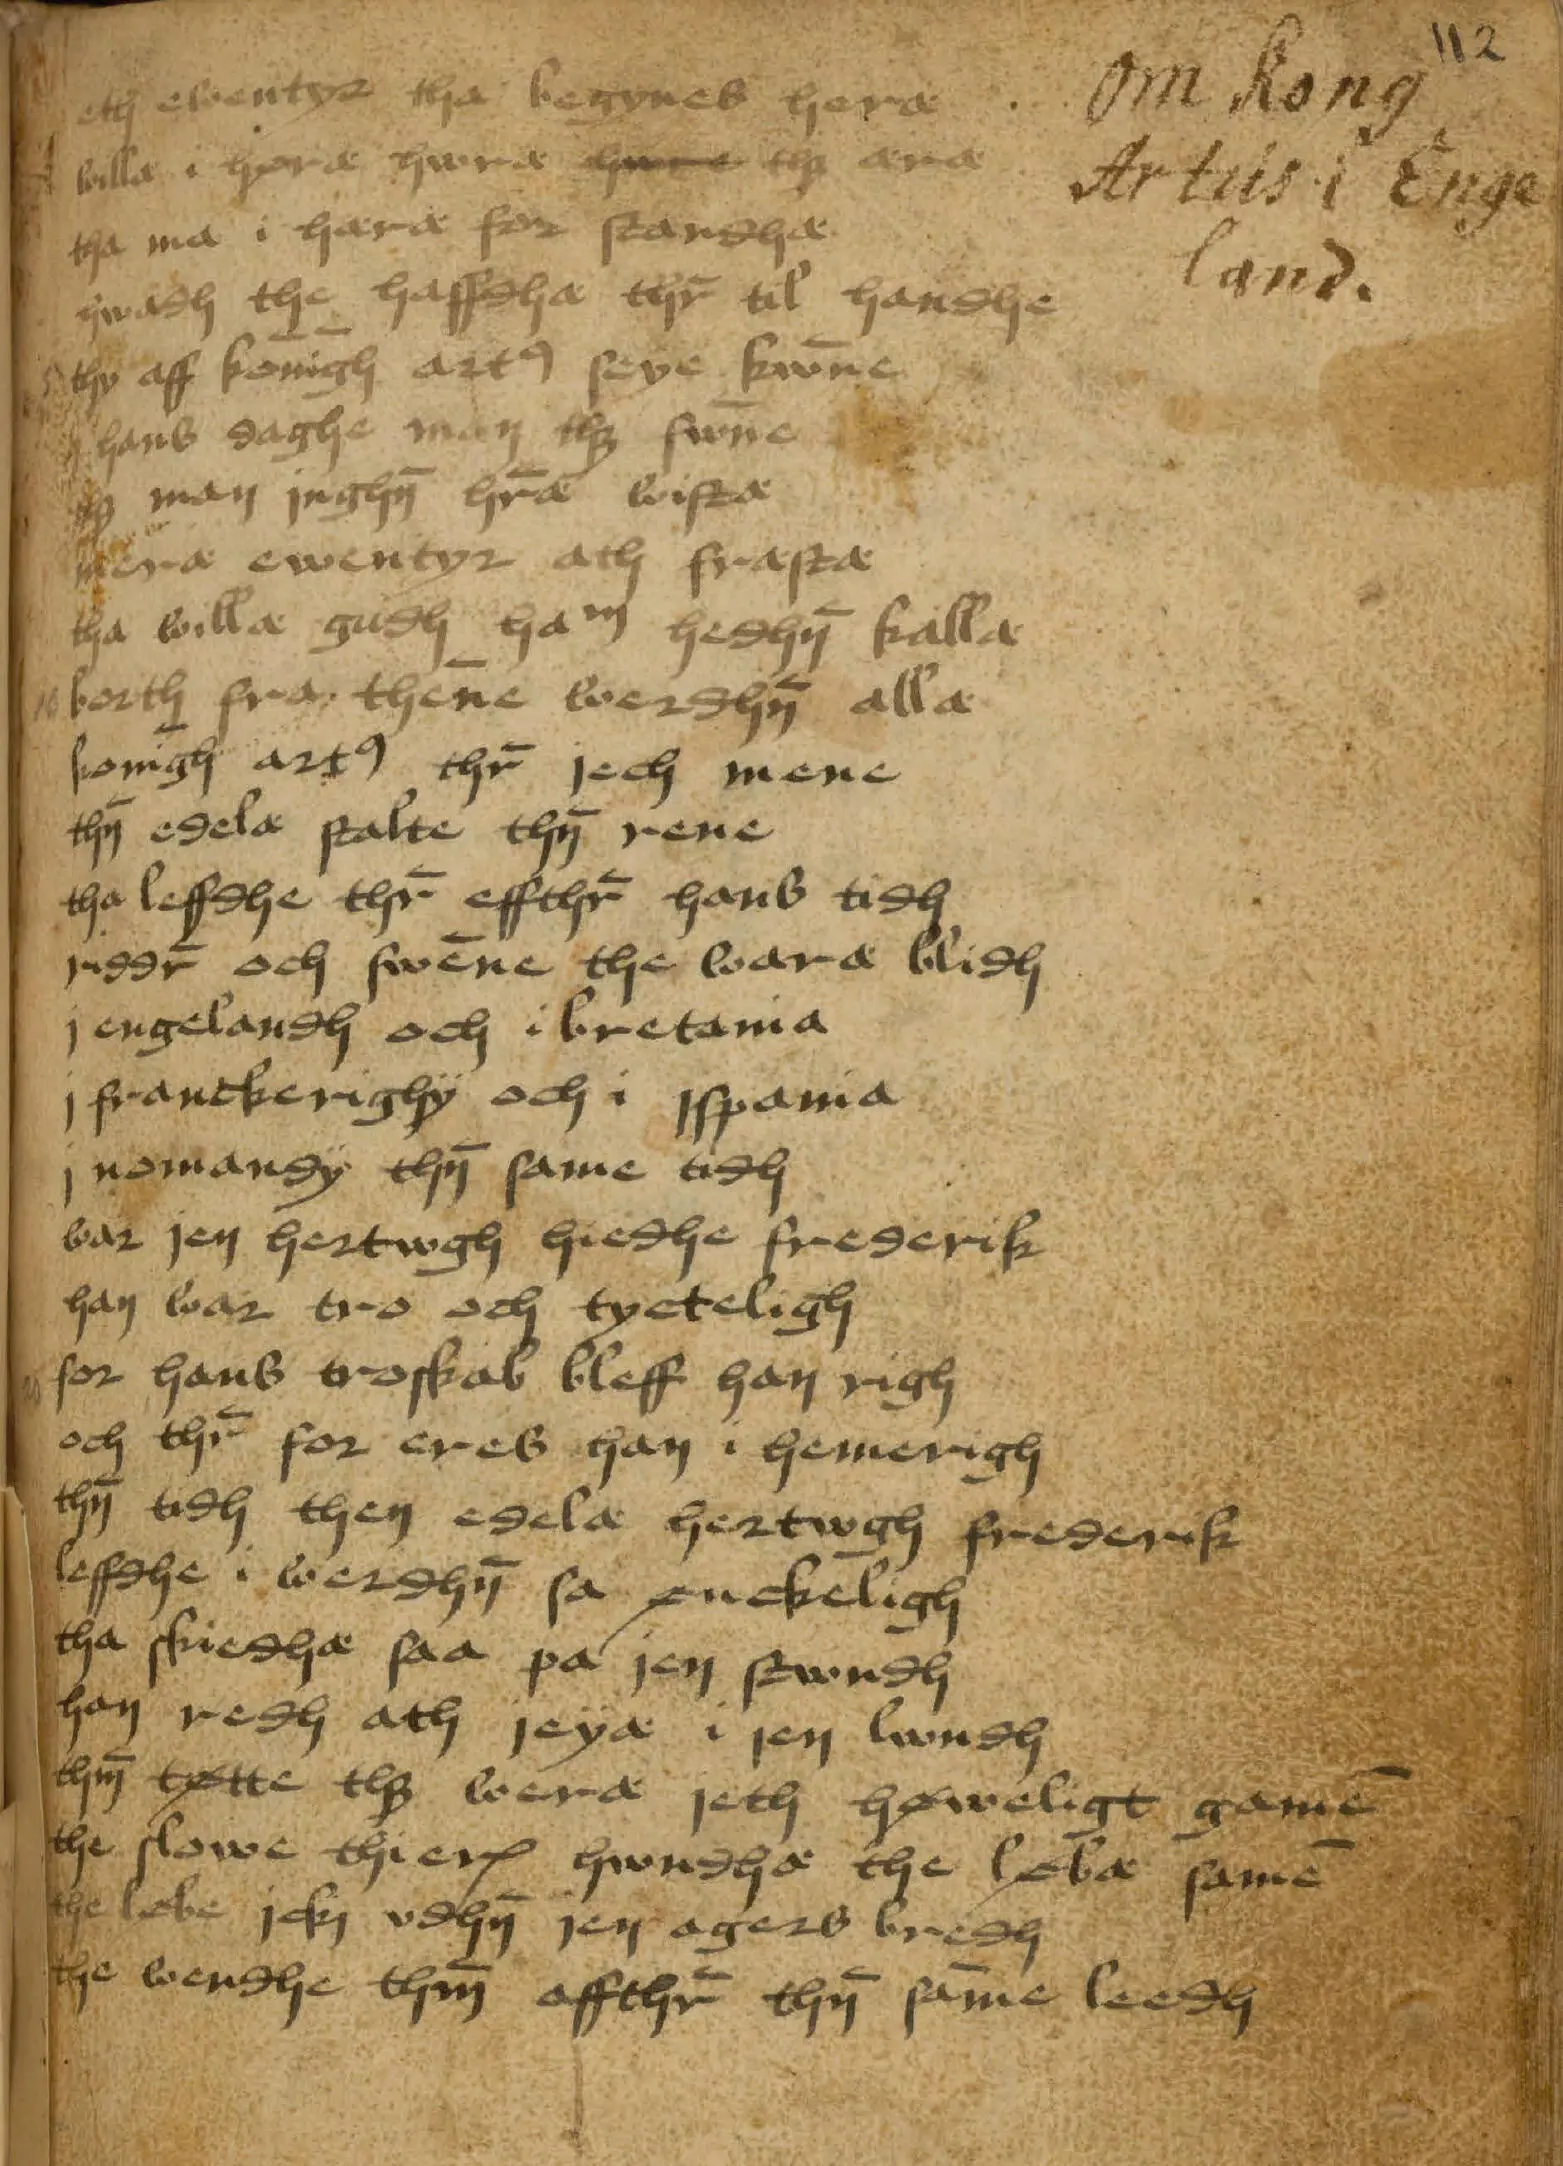 112
om kong
Artus i Enge
land.
eth ewentyr tha begynes heræ
willæ i høræ hwræ thꝫ æræ
tha ma i hæræ for standhæ
hwadh the haffdhæ thr̄ til handhe
thy aff konīgh artꝰ seye kwn̄e
i hans daghe man thꝫ fwn̄e
thꝫ man jnghn̄ hr̄æ wistæ
meræ ewentyr ath fræstæ
tha willæ gudh ham hedhn̄ kallæ
borth fra then̄e werdhn̄ allæ
konīgh artꝰ thr̄ jech mene
thn̄ edelæ stalte thn̄ rene
tha leffdhe thr̄ effthr̄ hans tidh
riddr̄ och swēne the waræ blidh
j engelandh och i bretania
j franckerighÿ och i jspania
j nomandÿ thn̄ same tidh
war jen hertwgh hiedhe frederik
han war tro och tycteligh
for hans troskab bleff han righ
och thr̄ for eres han i hemerigh
thn̄ tidh then edelæ hertwgh frederik
leffdhe i werdhn̄ sa ønckēligh
tha skiedhæ saa pa jen stwndh
han redh ath jeyæ i jen lwndh
thm̄ tøtte thꝫ weræ jeth høweligt gamē
the slowe thieræ hwndhæ the løbæ samē
the løbe jckj vdhn̄ jen agers bredh
the wendhe thm̄ affthr̄ thn̄ sām̄e leedh